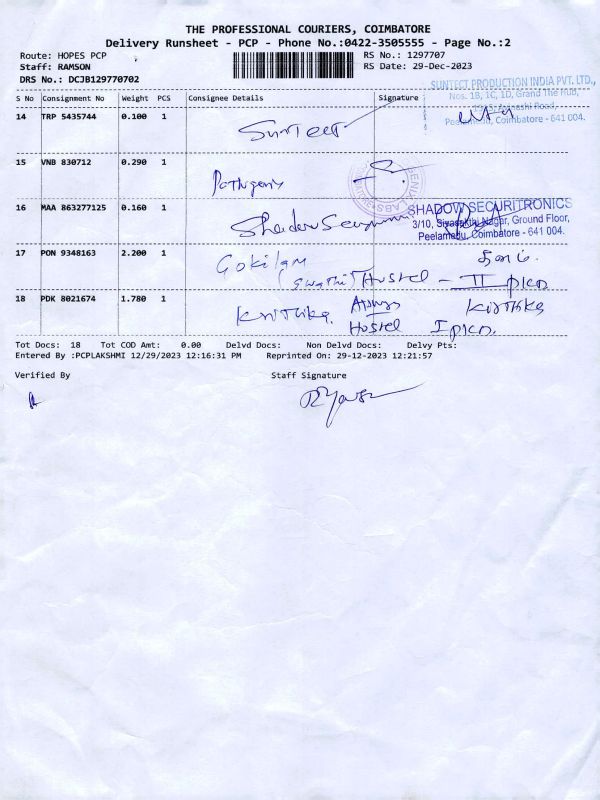 THE PROFESSIONAL COURIERS, COIMBATORE
Delivery Runsheet - PCP - Phone No.:0422-3505555 - Page No.:2
Route: HOPES PCP RS No.: 1297707
Staff: RAMSON RS Date: 29-Dec-2023
DRS No.: DCJB129770702
SUNTECT PRODUCTION INDIA PVT. LTD.,
Nos. 1B, 1C, 1D, Grand The Hub,
Road,
Peelamedu, Coimbatore - 641 004.
S No Consignment No Weight PCS Consignee Details Signature
14 TRP 5435744 0.100 1 Suntect
15 VNB 830712 0.290 1
16 MAA 863277125 0.160 1 Shadow
SHADOW SECURITRONICS
3/10, Sivasakthi Nagar, Ground Floor,
Peelamedu, Coimbatore - 641 004.
17 PON 9348163 2.200 1 Gokilam
(Swathi) Hostel - II
18 PDK 8021674 1.780 1 Krithika Kirthika
Hostel I
Tot Docs: 18 Tot COD Amt: 0.00 Delvd Docs: Non Delvd Docs: Delvy Pts:
Entered By :PCPLAKSHMI 12/29/2023 12:16:31 PM Reprinted On: 29-12-2023 12:21:57
Verified By Staff Signature